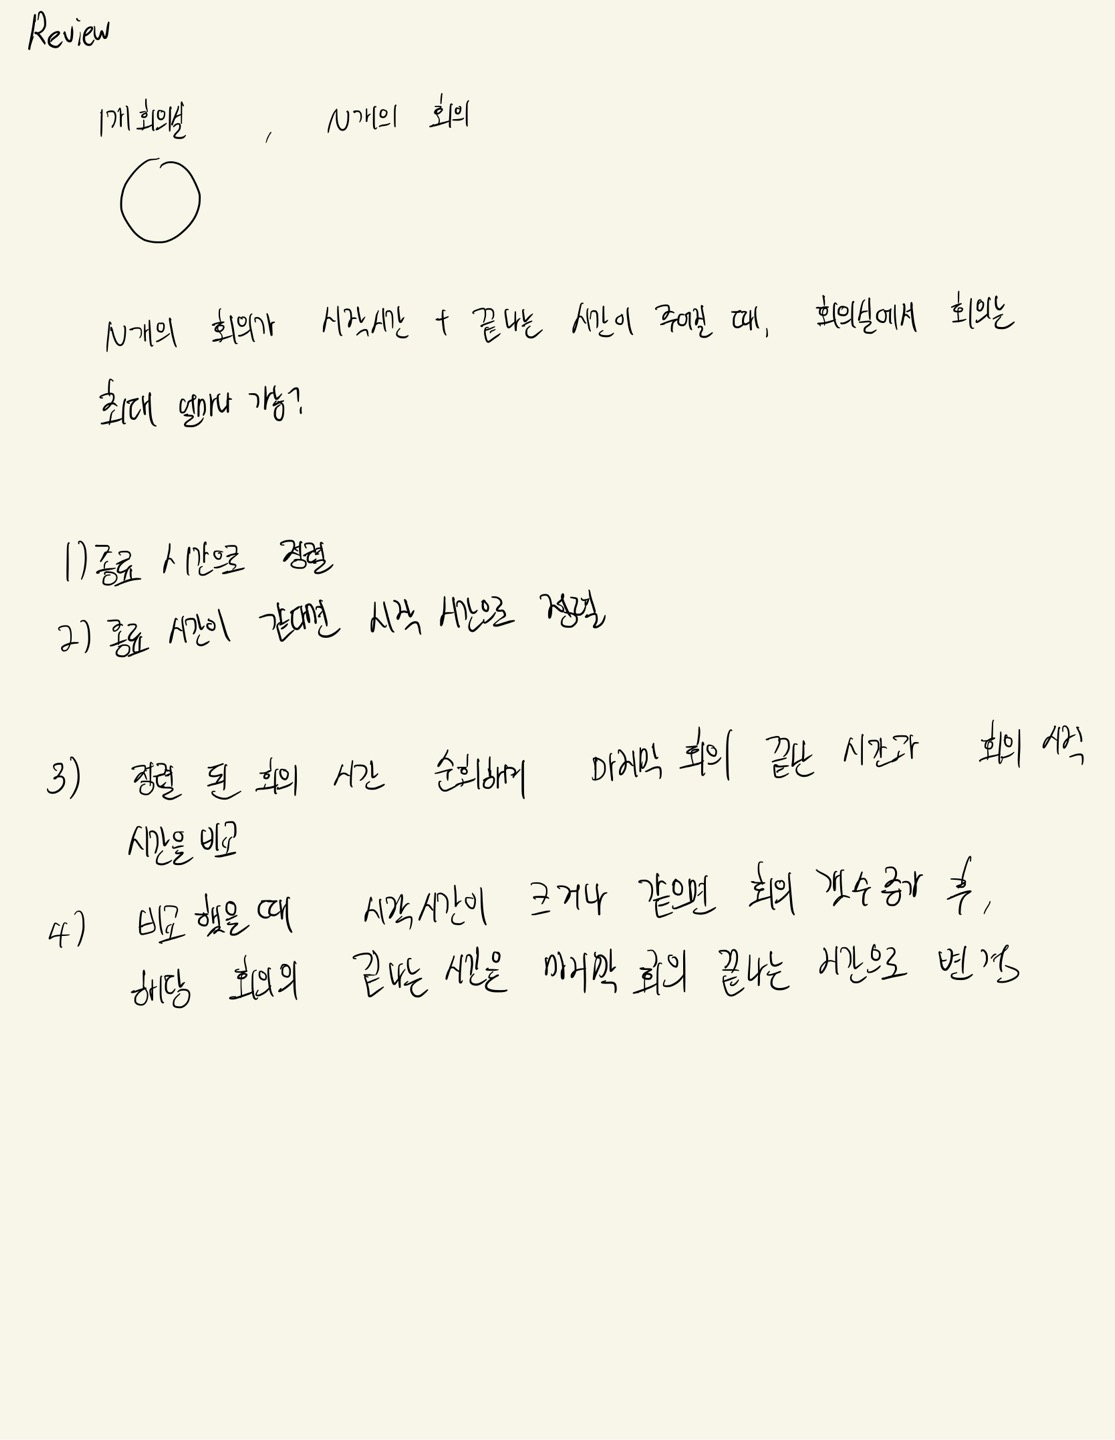 Review
1개 회의실 , N개의 회의
N개의 회의가 시작시간 + 끝나는 시간이 주어질 때, 회의실에서 회의는
최대 얼마나 가능?
1) 종료 시간으로 정렬
2) 종료 시간이 같다면 시작 시간으로 정렬
3) 정렬 된 회의 시간 순회하며 마지막 회의 끝난 시간과 회의 시작
시간을 비교
4) 비교 했을 때 시작시간이 크거나 같으면 회의 갯수 증가 후,
해당 회의의 끝나는 시간은 마지막 회의 끝나는 시간으로 변경